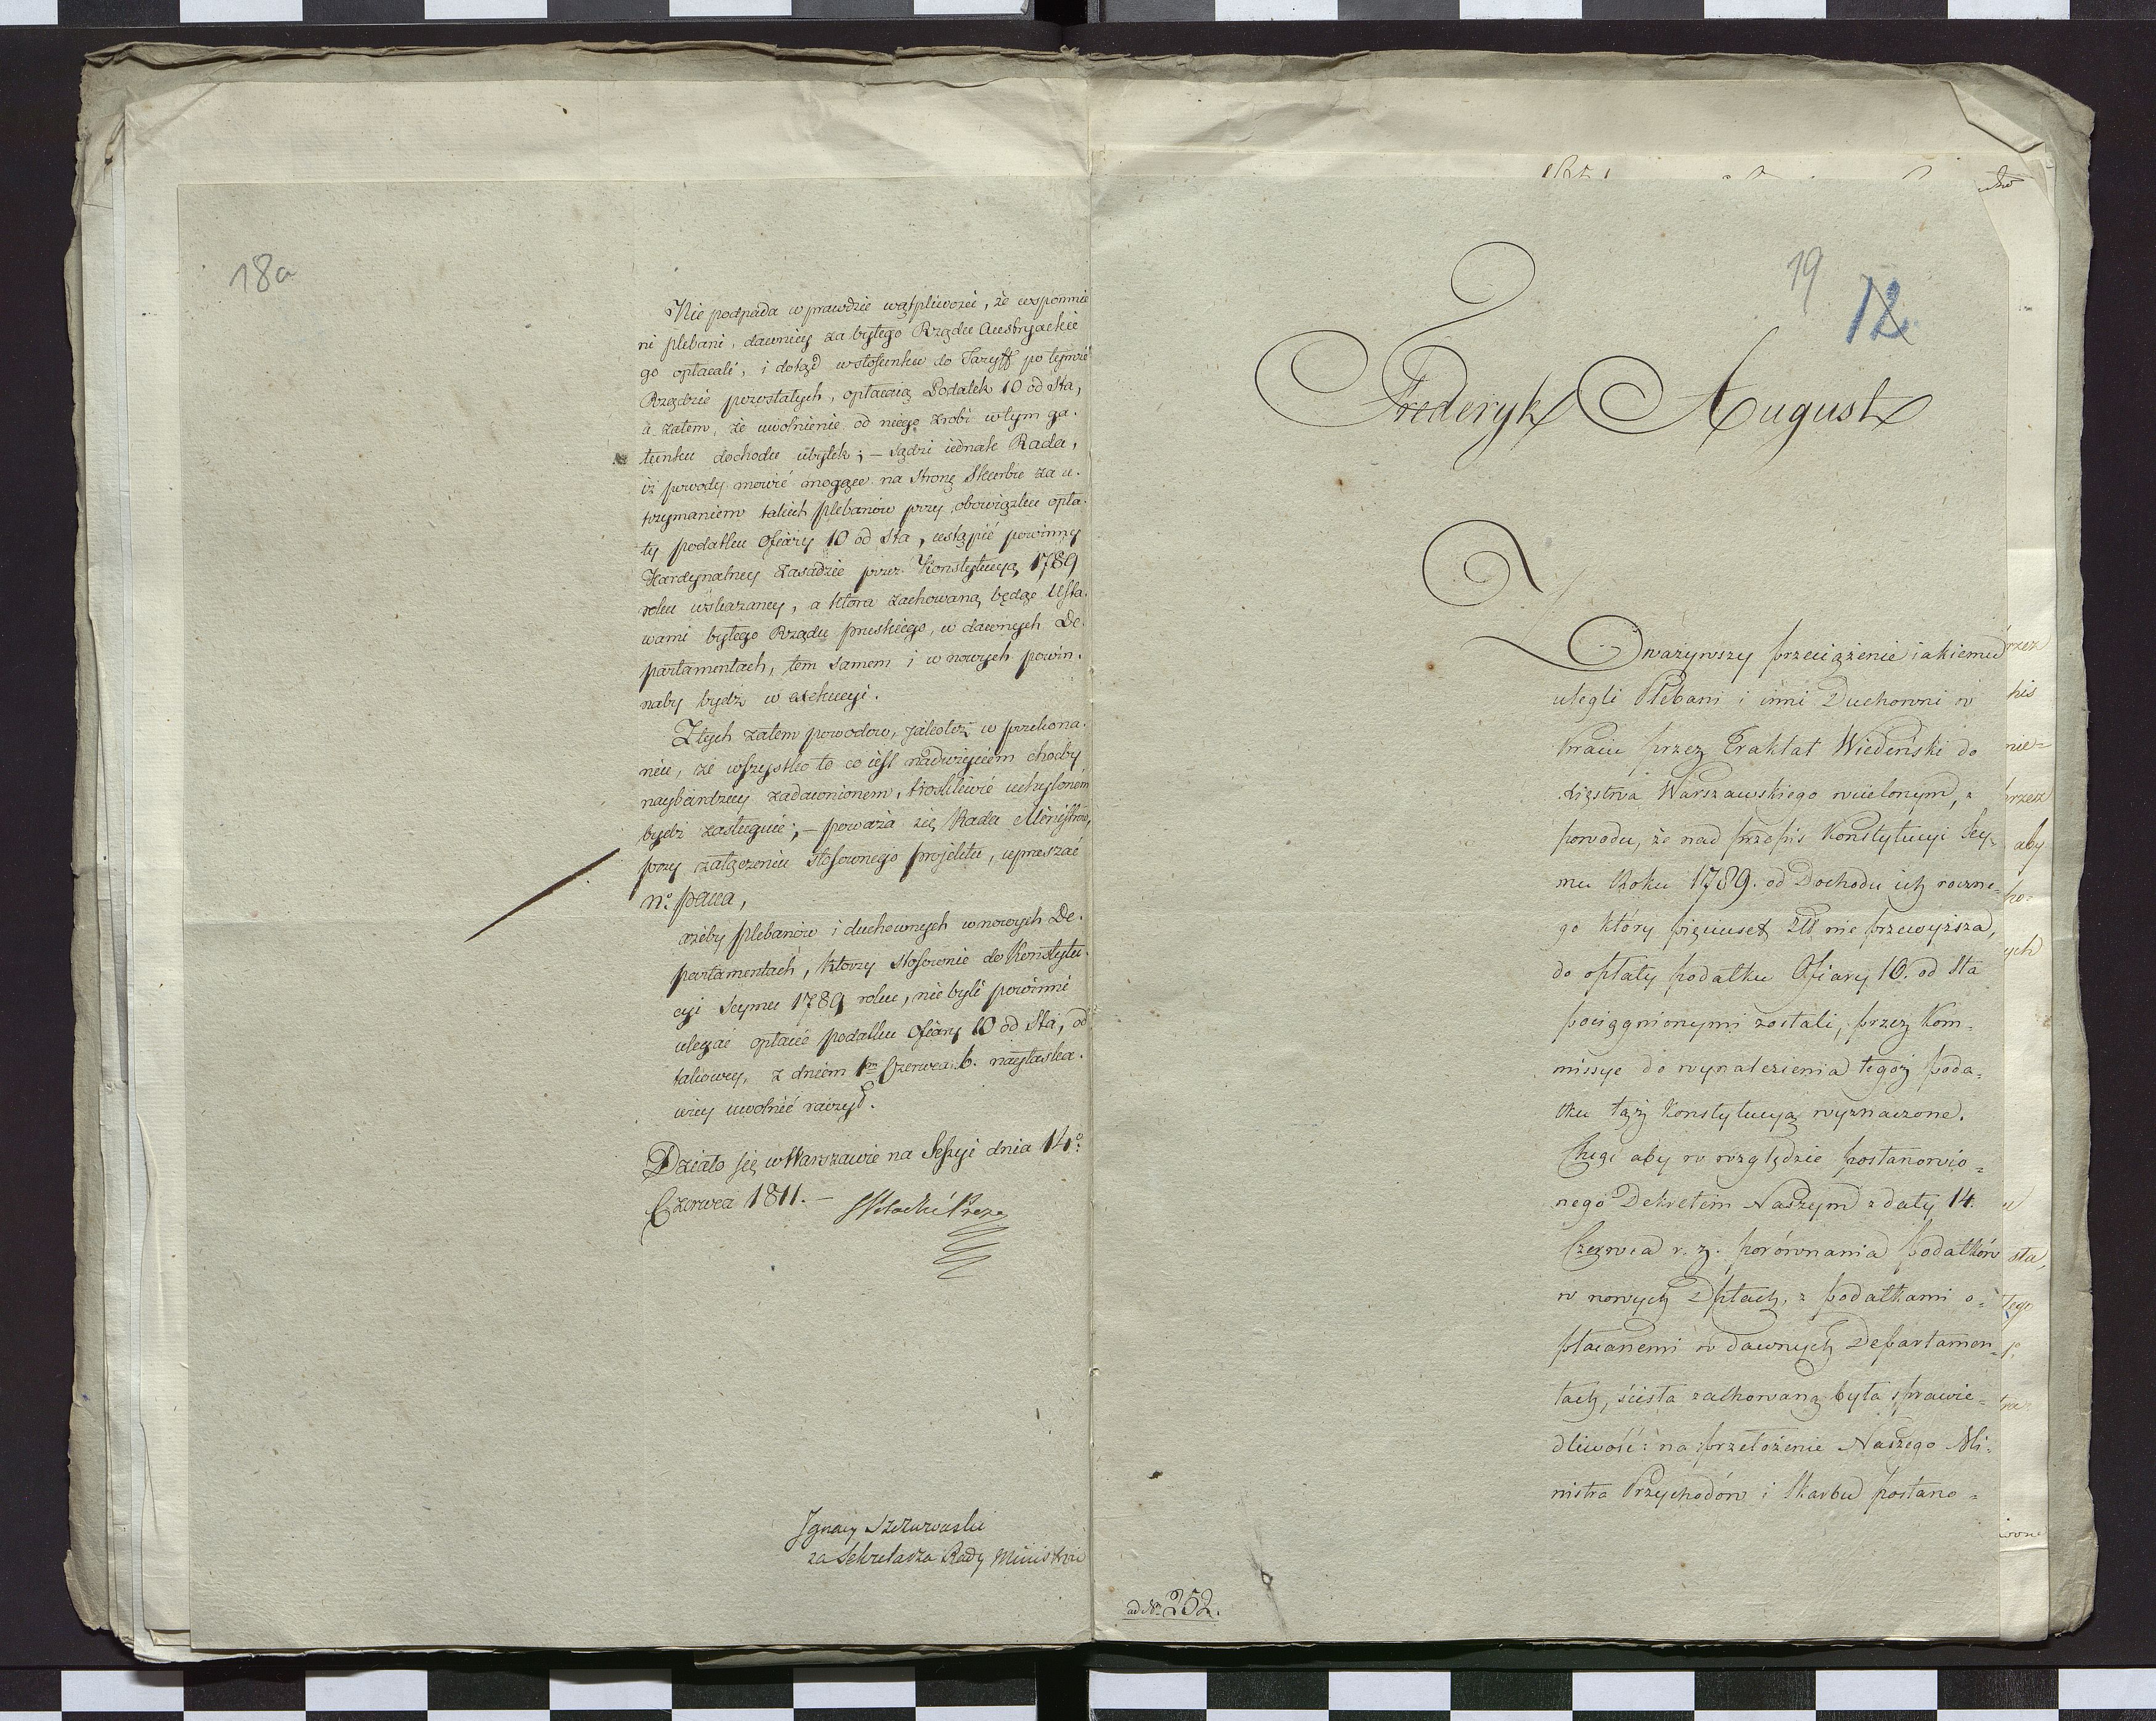 18a
Nie podpada wprawdzie wątpliwości, że wspomnie
ni plebani, dawniey za byłego Rządu Austryackie
go opłacali, i dotąd w stosunku do Taryff po tymże
Rządzie pozostałych, opłacaią Podatek 10 od Sta,
a zatem, że uwolnienie od niego zrobi w tym ga-
tunku dochodu ubytek; – sądzi iednak Rada,
iż powody mówić mogące na stronę Skarbu za u-
trzymaniem takich plebanów przy obowiązku opła-
ty podatku Ofiary 10 od Sta, ustąpić powinny
Kardynalney Zasadzie przez Konstytucyą 1789
roku wskazaney, a która zachowaną będąc Usta-
wami byłego Rządu pruskiego, w dawnych De-
partamentach, tem samem i w nowych powin-
naby bydź w exekucyi.
Z tych zatem powodow, jakoteż w przekona-
niu, że wszystko to co iest nadużyciem choćby
naybardziey zadawnionem, troskliwie uchylonem
bydź zasługuie; – poważa się Rada Ministrów,
przy załączeniu stosownego projektu, upraszać
N. Pana,
ażeby plebanów i duchownych w nowych De-
partamentach, którzy stosownie do Konstytu-
cyi Seymu 1789 roku, nie byli powinni
ulegać opłacie podatku Ofiary 10 od Sta, od
takowey, z dniem 1m Czerwca r. b. nayłaska-
wiey uwolnić raczył.
Działo się w Warszawie na Sessyi dnia 14o
Czerwca 1811. – S Potocki Prezes
Ignacy
za Sekretarza Rady Ministrów
19
12
Fryderyk August
Zważywszy przeciążenie iakiemu
ulegli Plebani i inni Duchowni w
kraiu przez Traktat Wiedeński do
Xięstwa Warszawskiego wcielonym, z
powodu, że nad przepis Konstytucyi Sey-
mu Roku 1789. od Dochodu ich roczne-
go który pięciuset Złł nie przewyższa,
do opłaty podatku Ofiary 10. od Sta
pociągnionymi zostali, przez Kom-
missye do wynalezienia tegoż poda-
tku tąż Konstytucyą wyznaczone.
Chcąc aby w względzie postanowio-
nego Dekretem Naszym z daty 14.
Czerwca r. z. porównania podatków
w nowych Dptach, z podatkami o-
płacanemi w dawnych Departamen-
tach, ścisła zachowaną była sprawie-
dliwość: na przełożenie Naszego Mi-
nistra Przychodów i Skarbu postano-
ad No 252.